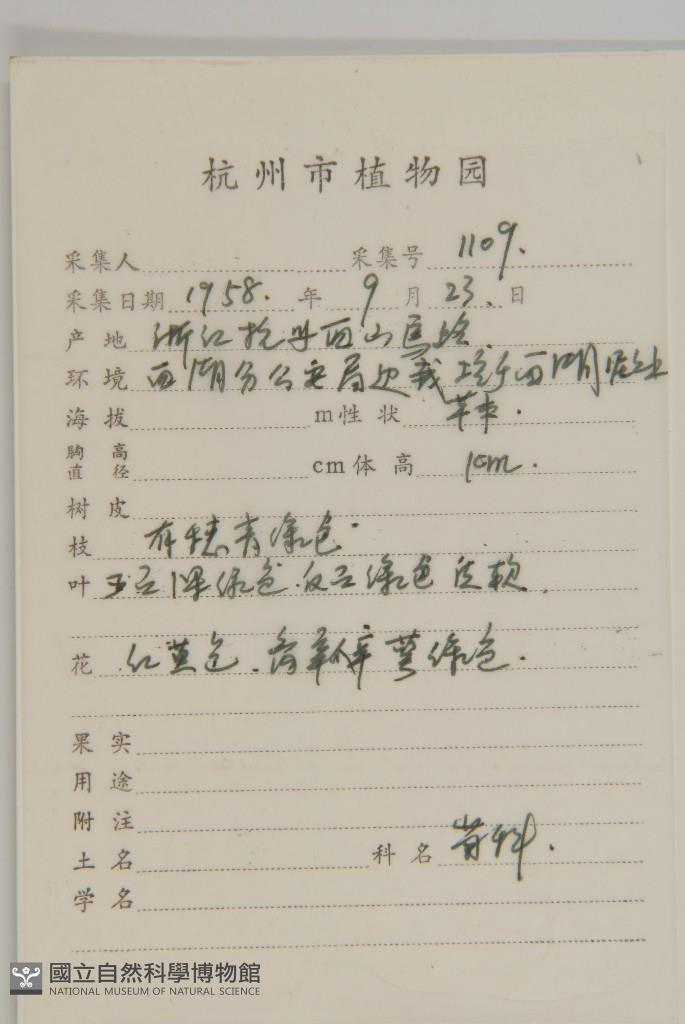 杭州市植物园
采集人 采集号 1109.
采集日期 1958. 年 9 月 23. 日
产地 浙江杭州西山馬路.
环境 西湖分公安局边
海拔 m性状 草本.
胸高直径 cm体高 1cm.
树皮
枝 有 青绿色.
叶 正面 绿色.反面绿色 质软.
花 红黄色. 黄绿色.
果实
用途
附注
土名 科名 科.
学名
國立自然科學博物館
NATIONAL MUSEUM OF NATURAL SCIENCE